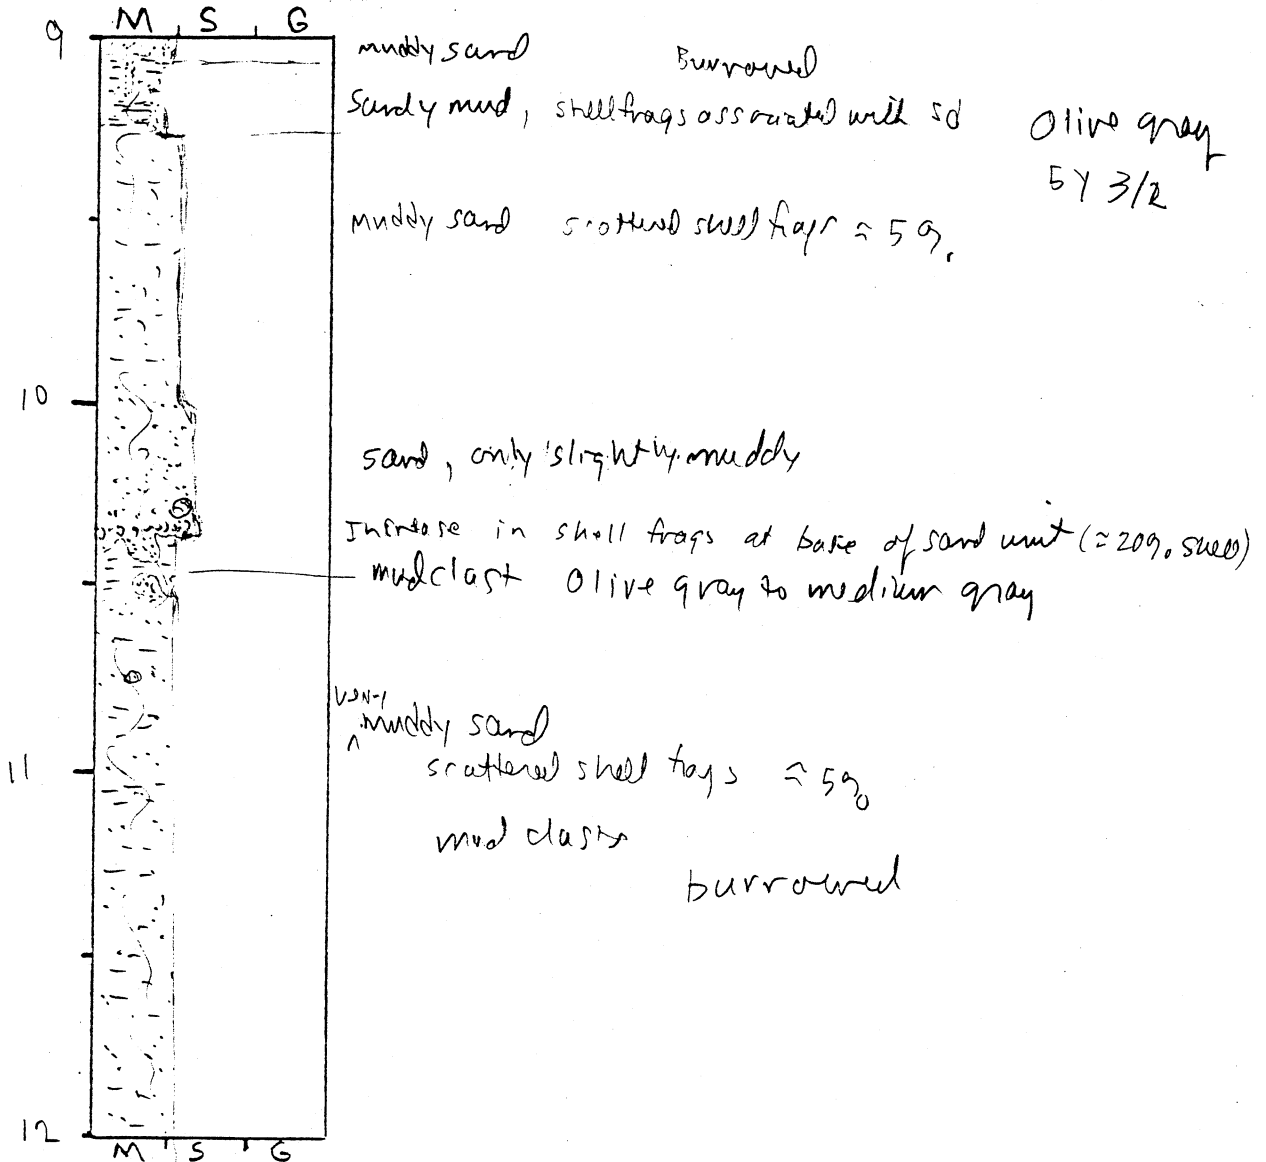 M S G
9
muddy sand Burrowed
Sandy mud, shell frags associated with sd
Olive gray
5Y 3/2
muddy sand scattered shell frags ≈ 5%
10
sand, only slightly muddy
Increase in shell frags at base of sand unit (≈ 20% shell)
mud clast Olive gray to medium gray
very
^ muddy sand
11
scattered shell frags ≈ 5%
mud clasts
burrowed
12
M S G